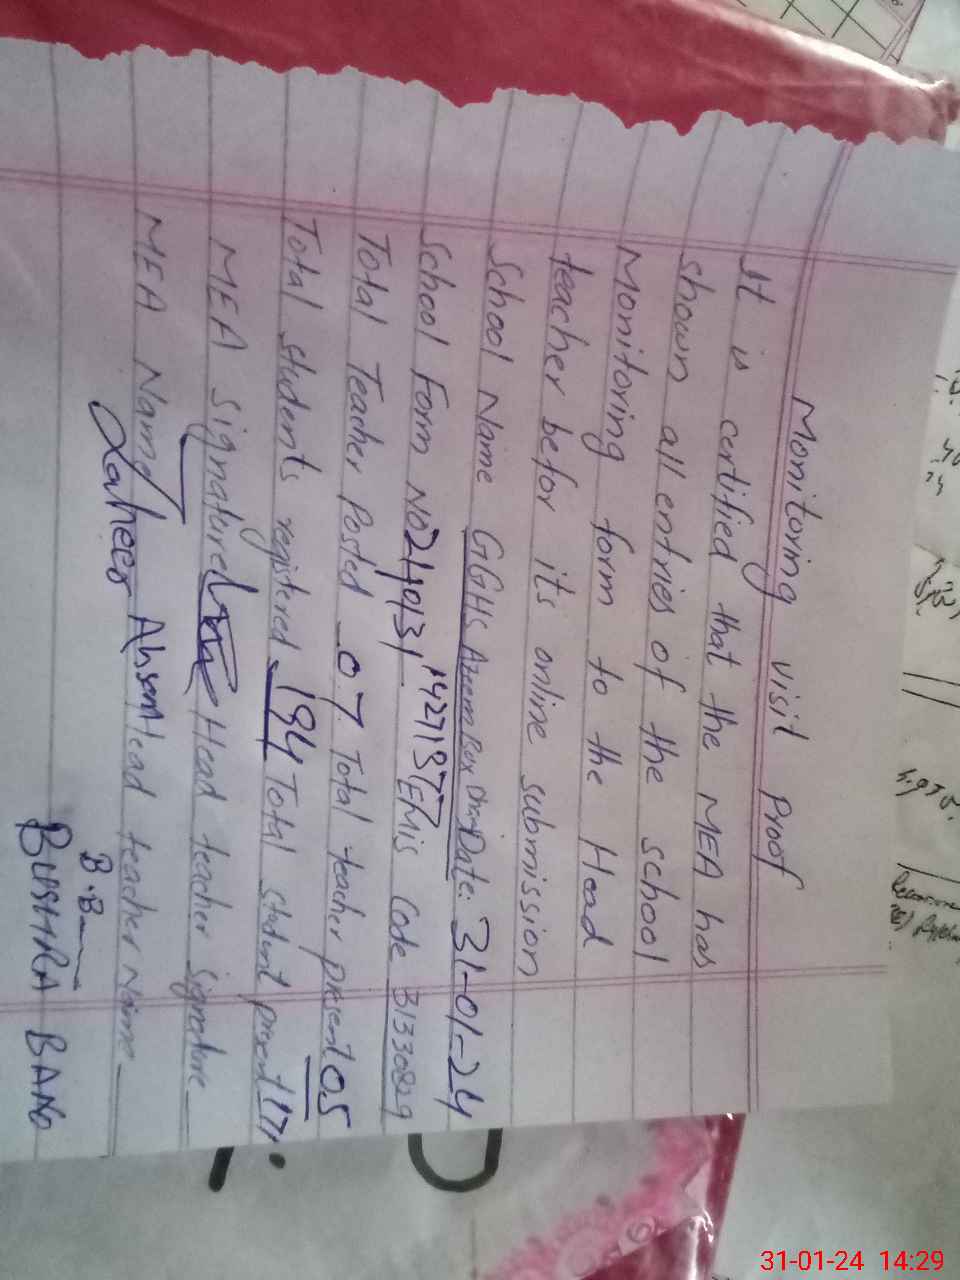 Monitoring visit proof
It is certified that the MEA has
shown all entries of the school
Monitoring form to the Head
teacher befor its online submission
School Name GGHS Azeem Date: 31-01-24
School Form No EMis Code 31330829
Total Teacher Posted 07 Total teacher present 05
Total students registered 194 Total student present 171
MEA signature Head teacher signature
MEA Name Zaheer Ahsan Head teacher Name
B.B
BUSHRA BANO
31-01-24 14:29